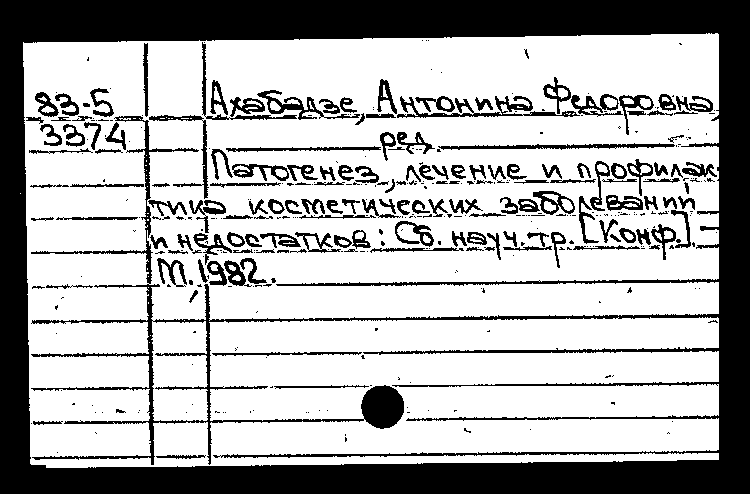 83-5 Ахабадзе, Антонина Федоровна,
3374 ред.
Патогенез, лечение и профилак-
тика косметических заболеваний
и недостатков: Сб. науч. тр. [Конф.] –
М., 1982.